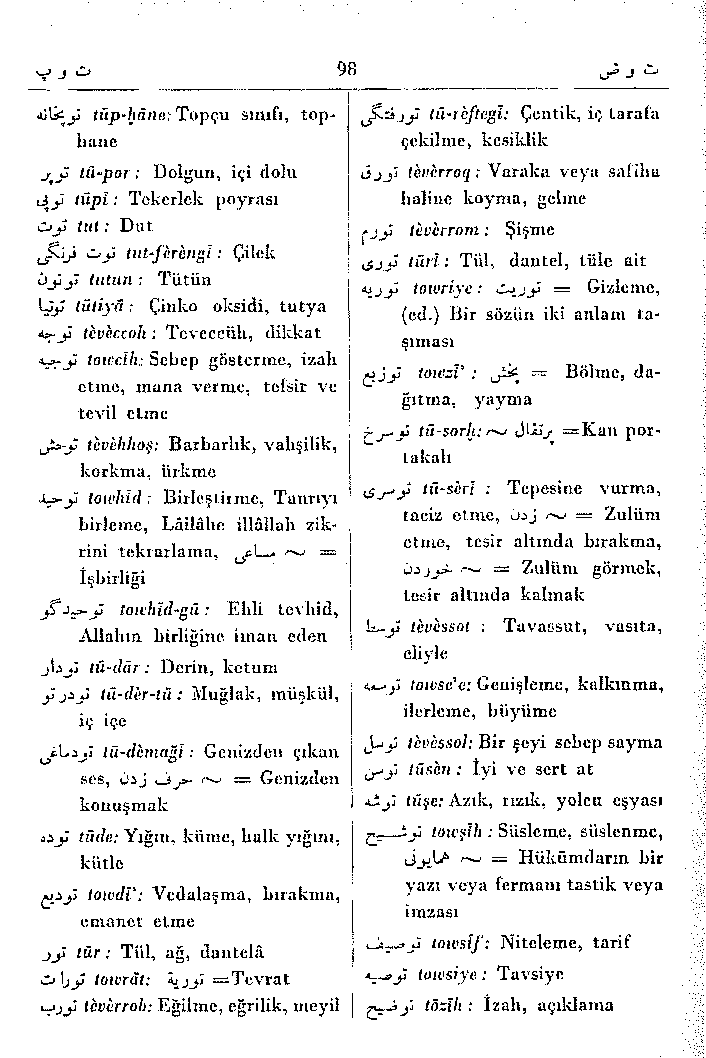 ت و پ 98 ت و ض
توپخانه tūp-ḫāne: Topçu sınıfı, top-
hane
توپر tū-por : Dolgun, içi dolu
توپی tūpī : Tekerlek poyrası
توت tut : Dut
توت فرنگی tut-fèrèngī : Çilek
توتون tutun : Tütün
توتیا tūtiyā : Çinko oksidi, tutya
توجه tèvèccoh : Teveccüh, dikkat
توجیه towcīh: Sebep gösterme, izah
etme, mana verme, tefsir ve
tevil etme
توحش tèvèhhoş: Barbarlık, vahşilik,
korkma, ürkme
توحید towhīd : Birleştirme, Tanrıyı
birleme, Lâilâhe illâllah zik-
rini tekrarlama, ~ مساعی =
İşbirliği
توحیدگو towhīd-gū : Ehli tevhid,
Allahın birliğine iman eden
تودار tū-dār : Derin, ketum
تودرتو tū-dèr-tū : Muğlak, müşkül,
iç içe
تودماغی tū-dèmaġī : Genizden çıkan
ses, ~ حرف زدن = Genizden
konuşmak
توده tūde: Yığın, küme, halk yığını,
kütle
تودیع towdī': Vedalaşma, bırakma,
emanet etme
تور tūr : Tül, ağ, dantelâ
تورات towrāt: توریة =Tevrat
تورب tèvèrrob: Eğilme, eğrilik, meyil
تورفتگی tū-rèftegī: Çentik, iç tarafa
çekilme, kesiklik
تورق tèvèrroq : Varaka veya safiha
haline koyma, gelme
تورم tèvèrrom : Şişme
توری tūrī : Tül, dantel, tüle ait
توریه towriye : توریت = Gizleme,
(ed.) Bir sözün iki anlam ta-
şıması
توزیع towzī' : پخش = Bölme, da-
ğıtma, yayma
توسرخ tū-sorḫ: ~ پرتقال =Kan por-
takalı
توسری tū-sèrī : Tepesine vurma,
taciz etme, ~ زدن = Zulüm
etme, tesir altında bırakma,
~ خوردن = Zulüm görmek,
tesir altında kalmak
توسط tèvèssot : Tavassut, vasıta,
eliyle
توسعه towse'e: Genişleme, kalkınma,
ilerleme, büyüme
توسل tèvèssol: Bir şeyi sebep sayma
توسن tūsèn : İyi ve sert at
توشه tūşe: Azık, rızık, yolcu eşyası
توشیح towşīh : Süsleme, süslenme,
~ همایون = Hükümdarın bir
yazı veya fermanı tastik veya
imzası
توصیف towsīf : Niteleme, tarif
توصیه towsiye : Tavsiye
توضیح tōzīh : İzah, açıklama